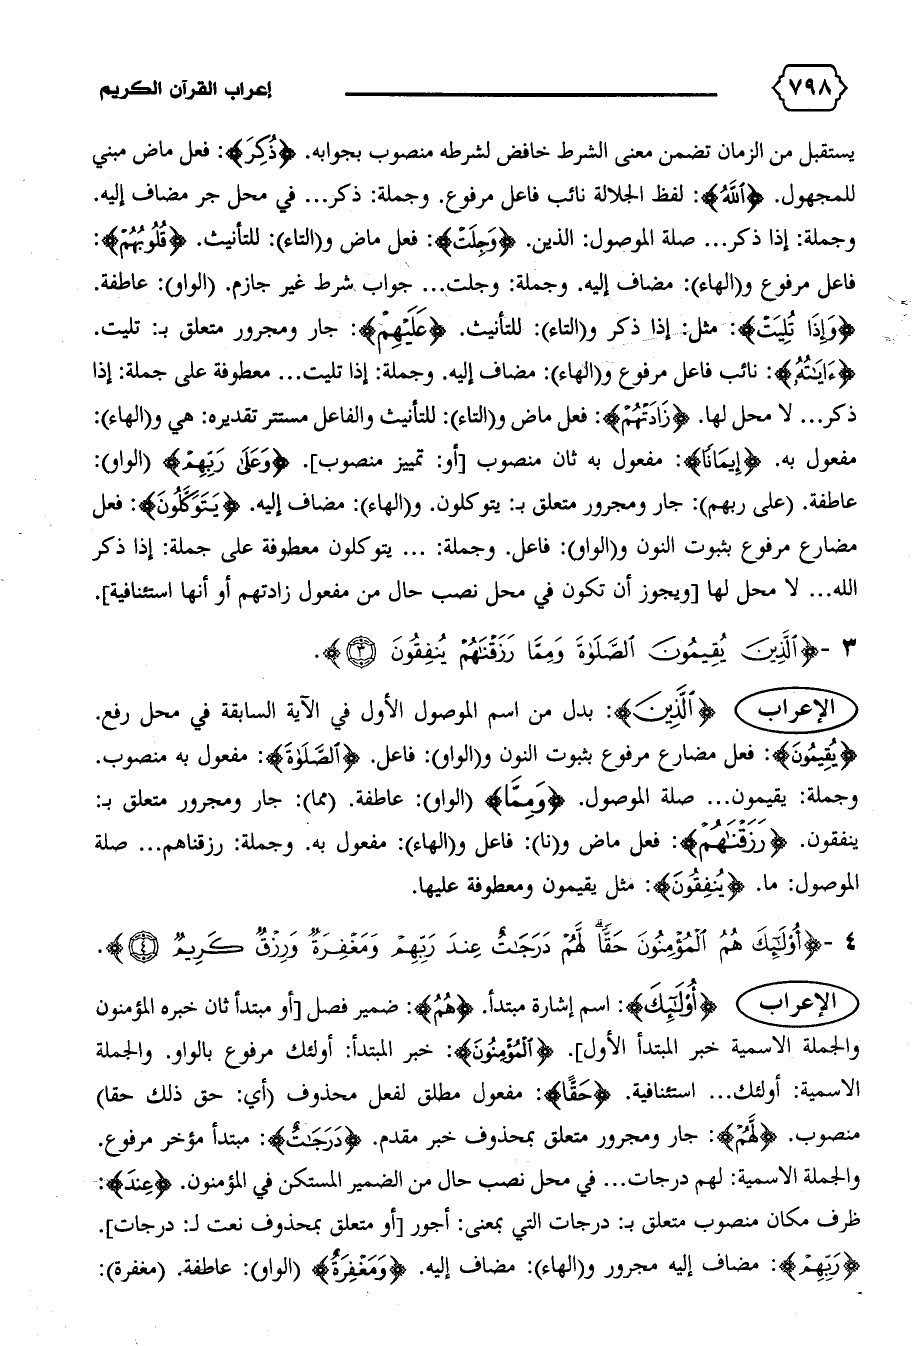 ٧٩٨ إعراب القرآن الكريم
يستقبل من الزمان تضمن معنى الشرط خافض لشرطه منصوب بجوابه. ﴿ذُكِرَ﴾: فعل ماض مبني
للمجهول. ﴿ٱللَّهُ﴾: لفظ الجلالة نائب فاعل مرفوع. وجملة: ذكر... في محل جر مضاف إليه.
وجملة: إذا ذكر... صلة الموصول: الذين. ﴿وَجِلَتۡ﴾: فعل ماض و(التاء): للتأنيث. ﴿قُلُوبُهُمۡ﴾:
فاعل مرفوع و(الهاء): مضاف إليه. وجملة: وجلت... جواب شرط غير جازم. (الواو): عاطفة.
﴿وَإِذَا تُلِيَتۡ﴾: مثل: إذا ذكر و(التاء): للتأنيث. ﴿عَلَيۡهِمۡ﴾: جار ومجرور متعلق بـ: تليت.
﴿ءَايَٰتُهُۥ﴾: نائب فاعل مرفوع و(الهاء): مضاف إليه. وجملة: إذا تليت... معطوفة على جملة: إذا
ذكر... لا محل لها. ﴿زَادَتۡهُمۡ﴾: فعل ماض و(التاء): للتأنيث والفاعل مستتر تقديره: هي و(الهاء):
مفعول به. ﴿إِيمَٰنٗا﴾: مفعول به ثان منصوب [أو: تمييز منصوب]. ﴿وَعَلَىٰ رَبِّهِمۡ﴾ (الواو):
عاطفة. (على ربهم): جار ومجرور متعلق بـ: يتوكلون. و(الهاء): مضاف إليه. ﴿يَتَوَكَّلُونَ﴾: فعل
مضارع مرفوع بثبوت النون و(الواو): فاعل. وجملة: ... يتوكلون معطوفة على جملة: إذا ذكر
الله... لا محل لها [ويجوز أن تكون في محل نصب حال من مفعول زادتهم أو أنها استئنافية].
٣ -﴿ٱلَّذِينَ يُقِيمُونَ ٱلصَّلَوٰةَ وَمِمَّا رَزَقۡنَٰهُمۡ يُنفِقُونَ ٣﴾.
الإعراب ﴿ٱلَّذِينَ﴾: بدل من اسم الموصول الأول في الآية السابقة في محل رفع.
﴿يُقِيمُونَ﴾: فعل مضارع مرفوع بثبوت النون و(الواو): فاعل. ﴿ٱلصَّلَوٰةَ﴾: مفعول به منصوب.
وجملة: يقيمون... صلة الموصول. ﴿وَمِمَّا﴾ (الواو): عاطفة. (مما): جار ومجرور متعلق بـ:
ينفقون. ﴿رَزَقۡنَٰهُمۡ﴾: فعل ماض و(نا): فاعل و(الهاء): مفعول به. وجملة: رزقناهم... صلة
الموصول: ما. ﴿يُنفِقُونَ﴾: مثل يقيمون ومعطوفة عليها.
٤ -﴿أُوْلَٰٓئِكَ هُمُ ٱلۡمُؤۡمِنُونَ حَقّٗاۚ لَّهُمۡ دَرَجَٰتٌ عِندَ رَبِّهِمۡ وَمَغۡفِرَةٞ وَرِزۡقٞ كَرِيمٞ ٤﴾.
الإعراب ﴿أُوْلَٰٓئِكَ﴾: اسم إشارة مبتدأ. ﴿هُمُ﴾: ضمير فصل [أو مبتدأ ثان خبره المؤمنون
والجملة الاسمية خبر المبتدأ الأول]. ﴿ٱلۡمُؤۡمِنُونَ﴾: خبر المبتدأ: أولئك مرفوع بالواو. والجملة
الاسمية: أولئك... استئنافية. ﴿حَقّٗا﴾: مفعول مطلق لفعل محذوف (أي: حق ذلك حقا)
منصوب. ﴿لَّهُمۡ﴾: جار ومجرور متعلق بمحذوف خبر مقدم. ﴿دَرَجَٰتٌ﴾: مبتدأ مؤخر مرفوع.
والجملة الاسمية: لهم درجات... في محل نصب حال من الضمير المستكن في المؤمنون. ﴿عِندَ﴾:
ظرف مكان منصوب متعلق بـ: درجات التي بمعنى: أجور [أو متعلق بمحذوف نعت لـ: درجات].
﴿رَبِّهِمۡ﴾: مضاف إليه مجرور و(الهاء): مضاف إليه. ﴿وَمَغۡفِرَةٞ﴾ (الواو): عاطفة. (مغفرة):